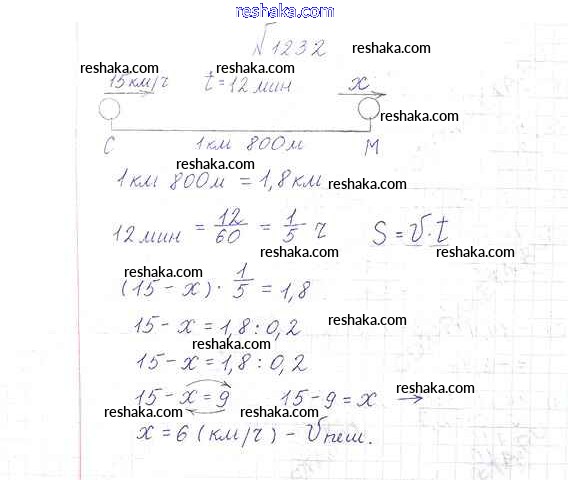 reshaka.com
№1232
reshaka.com
reshaka.com reshaka.com
15км/ч t=12мин x
reshaka.com
C 1км 800м M
reshaka.com
1км 800м = 1,8км
reshaka.com
12мин = 12/60 = 1/5 ч S = V·t
reshaka.com reshaka.com
reshaka.com
(15 - x) · 1/5 = 1,8
15 - x = 1,8 : 0,2
reshaka.com
reshaka.com
15 - x = 1,8 : 0,2
reshaka.com
15 - x = 9 15 - 9 = x →
reshaka.com reshaka.com reshaka.com
x = 6 (км/ч) - Vпеш.